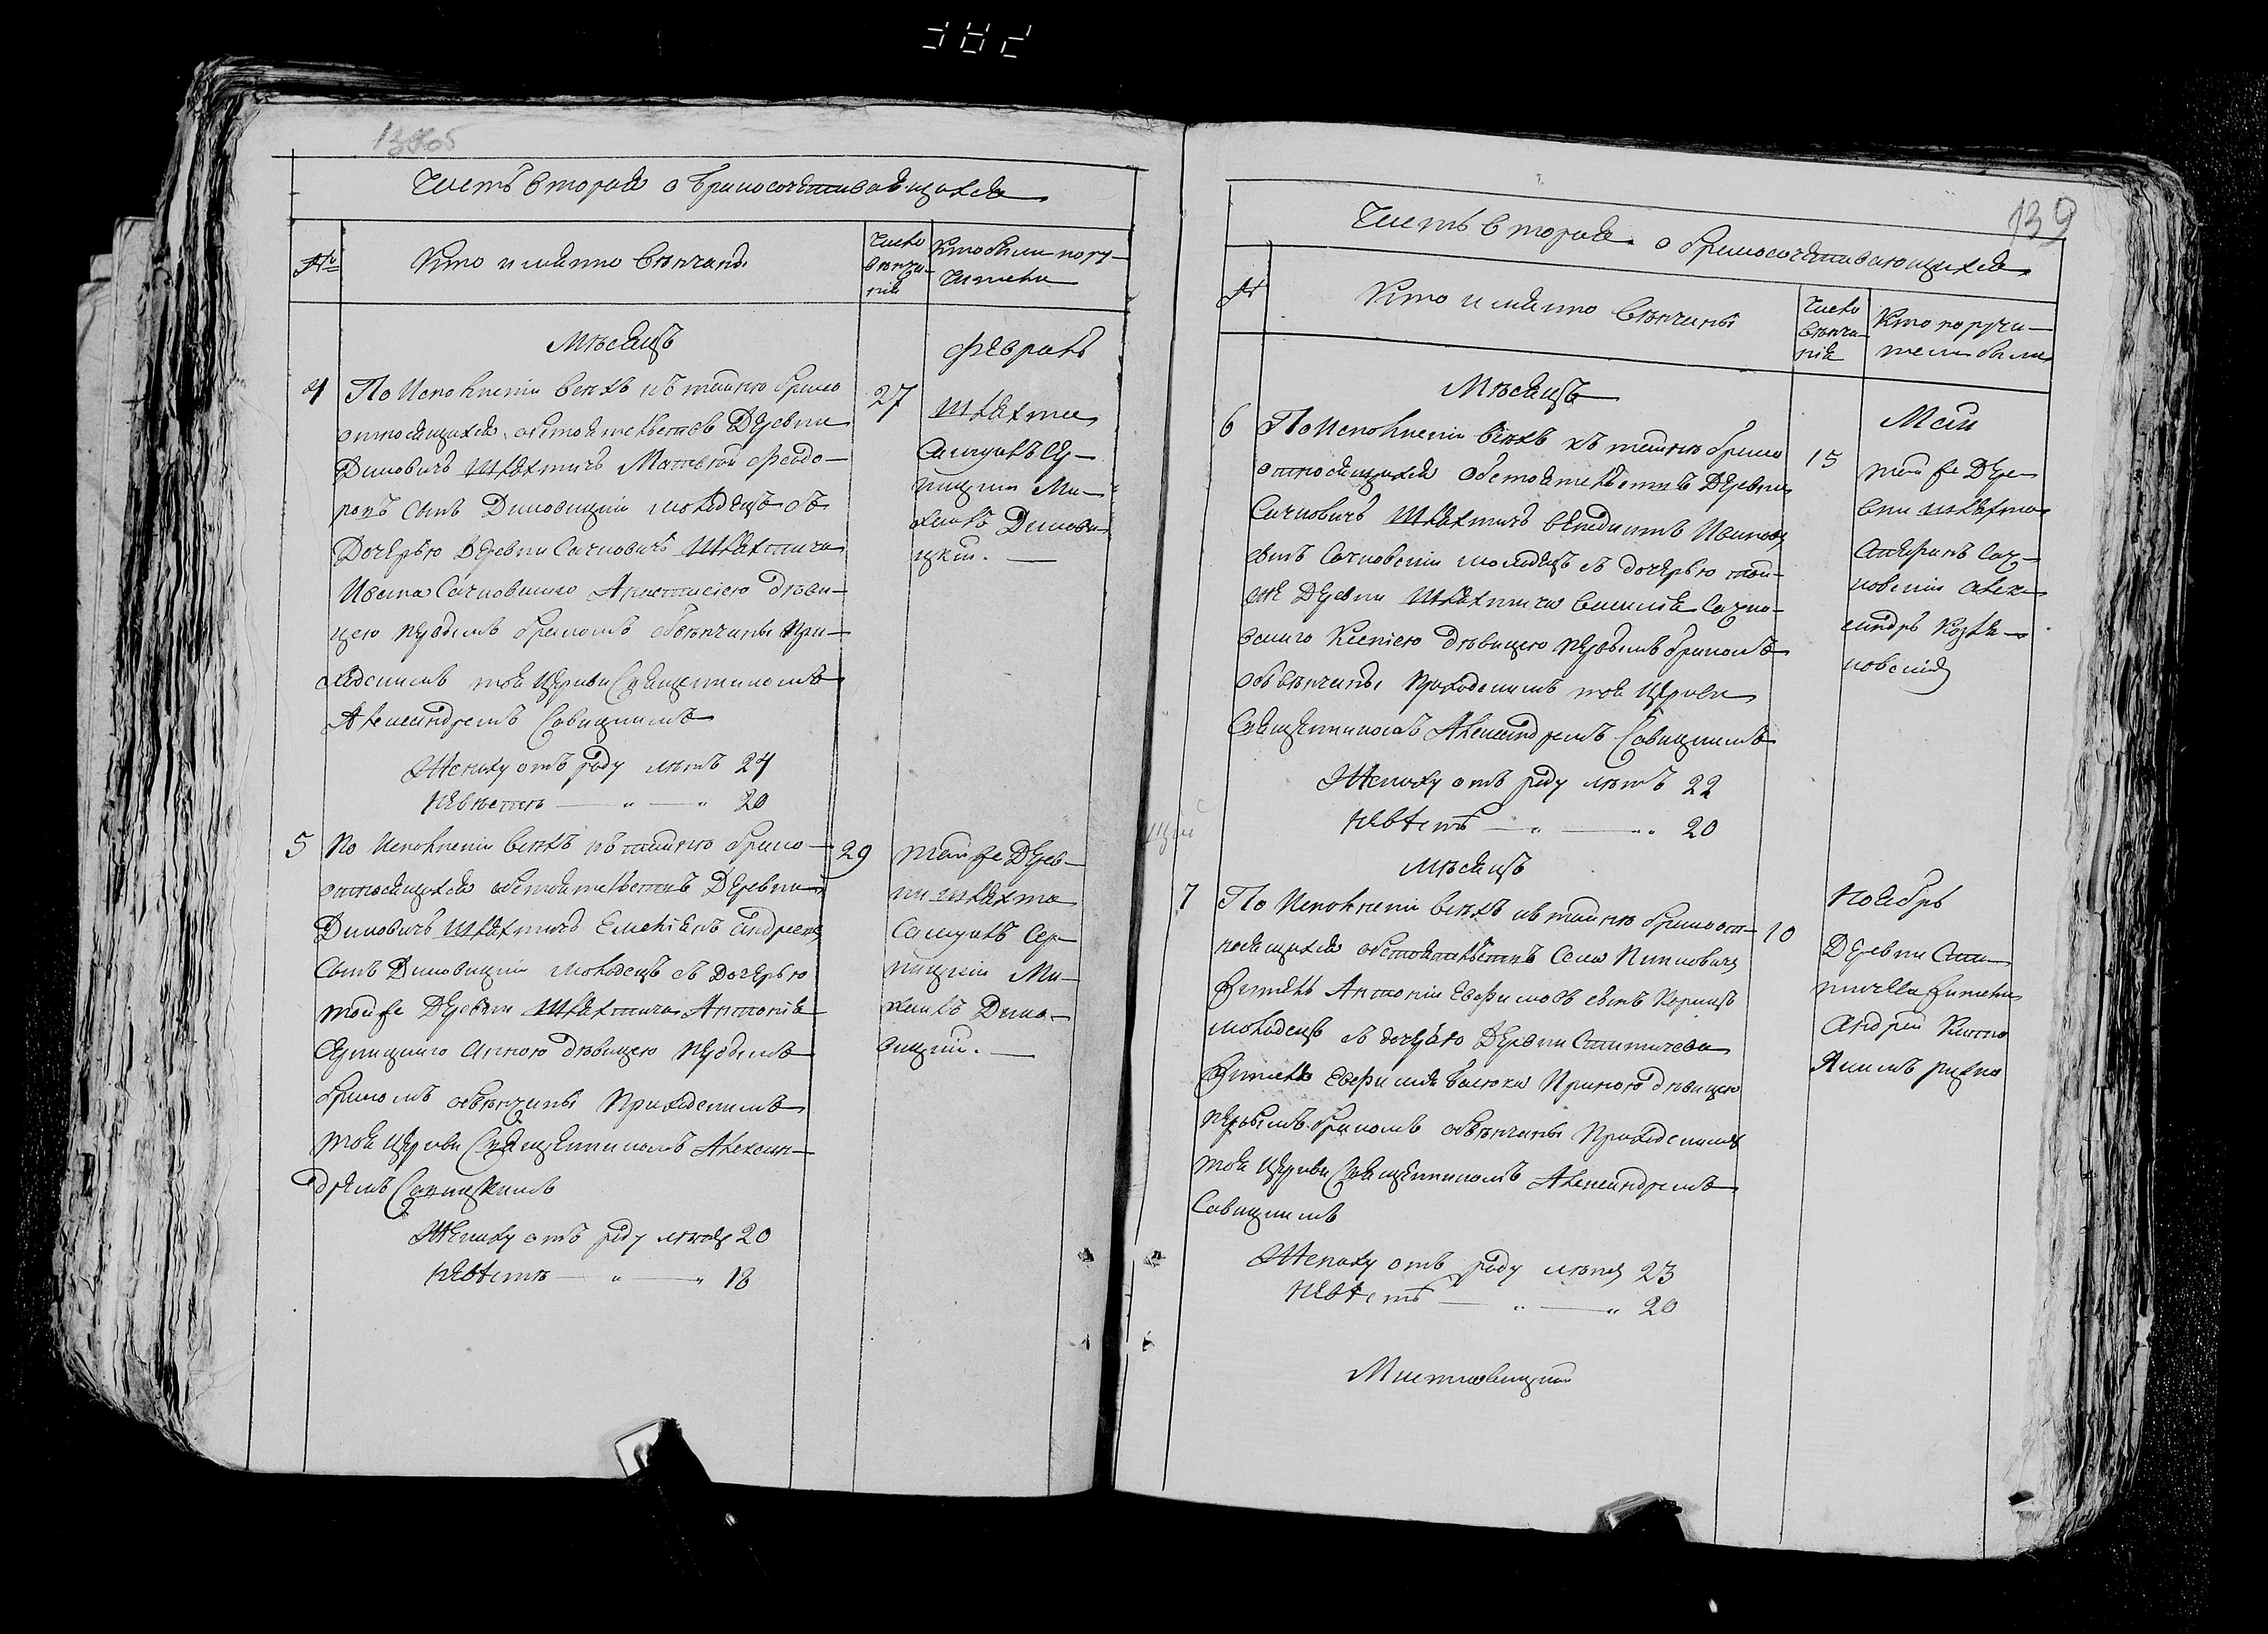 138об
Часть вторая о бракосочетавающихся
№
Кто именно венчаны
Число венча-
нія
Кто были пору-
чители
Месяцъ
Февраль
4
По исполненіи всехъ къ тайню брака
относящихся обстоятельствъ Деревни
Диковичъ шляхтичъ Матвей Феодо-
ровъ сынъ Диковицкій молодецъ съ
Дочерью Деревни Сачковичъ Шляхтича
Ивана Сачковского Анастасіею деви-
цею первымъ бракомъ обвенчаны При-
ходскимъ тоя Церкви Священникомъ
Александромъ Савицкимъ
Жениху отъ роду летъ 24
Невесте — „ — „ 20
27
Шляхта
Самуилъ Се-
Ми-
хаилъ Дикови-
цкій. —
5
По исполненіи всехъ къ тайню брака
относящихся обстоятельствъ Деревни
Диковичъ Шляхтичъ Емеліянъ Андреевъ
Сынъ Диковицкій молодецъ съ Дочерью
той же Деревни Шляхтича Антонія
Анною Девицею первымъ
бракомъ обвенчаны Приходскимъ
тоя Церкви Священникомъ Алексан-
дромъ Савицкимъ
Жениху отъ роду летъ 20
Невесте — „ — „ 18
29
той же Дерев-
ни шляхта
Самуилъ Сер-
Ми-
хаилъ Дико-
вицкій. —
139
Часть вторая о бракосочетавающихся
№
Кто именно венчаны
Число
венча-
нія
Кто поручи-
тели были
Месяцъ
Май
6
По исполненіи всехъ къ тайню брака
относящихся обстоятельствъ Деревни
Сачковичъ Шляхтичъ Венедиктъ Ивановъ
сынъ Сачковскій молодецъ съ дочерью той-
же Деревни Шляхтича Василія Сачко-
вского Ксеніею девицею первымъ бракомъ
обвенчаны Приходскимъ тоя Церкви
Священникомъ Александромъ Савицкимъ
Жениху отъ роду летъ 22
Невесте — „ — „ 20
15
той же Дере-
вни шляхта
Стефанъ Сач-
ковскій Алек-
сандръ Козля-
ковскій
Месяцъ
Ноябрь
7
По исполненіи всехъ къ тайню брака от-
носящихся обстоятельствъ Села
Житель Антоній Евфимовъ сынъ
молодецъ съ дочерью Деревни Стытычева
Жителя Евфимія девицею
первымъ бракомъ обвенчаны Приходскимъ
тоя Церкви Священникомъ Александромъ
Савицкимъ
Жениху отъ роду летъ 23
Невесте — „ — „ 20
10
Деревни Сты-
тычева жители
Андрей